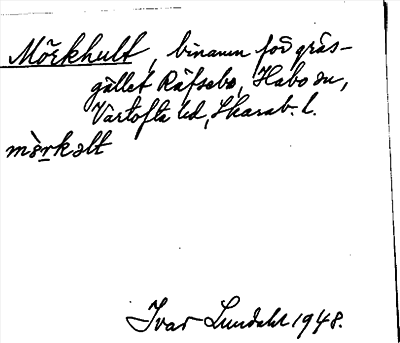 Mörkhult, binamn för gräs-
gället Räfsebo, Habo sn,
Vartofta hd, Skarab. l.
mö̀rkəlt
Ivar Lundahl 1948.